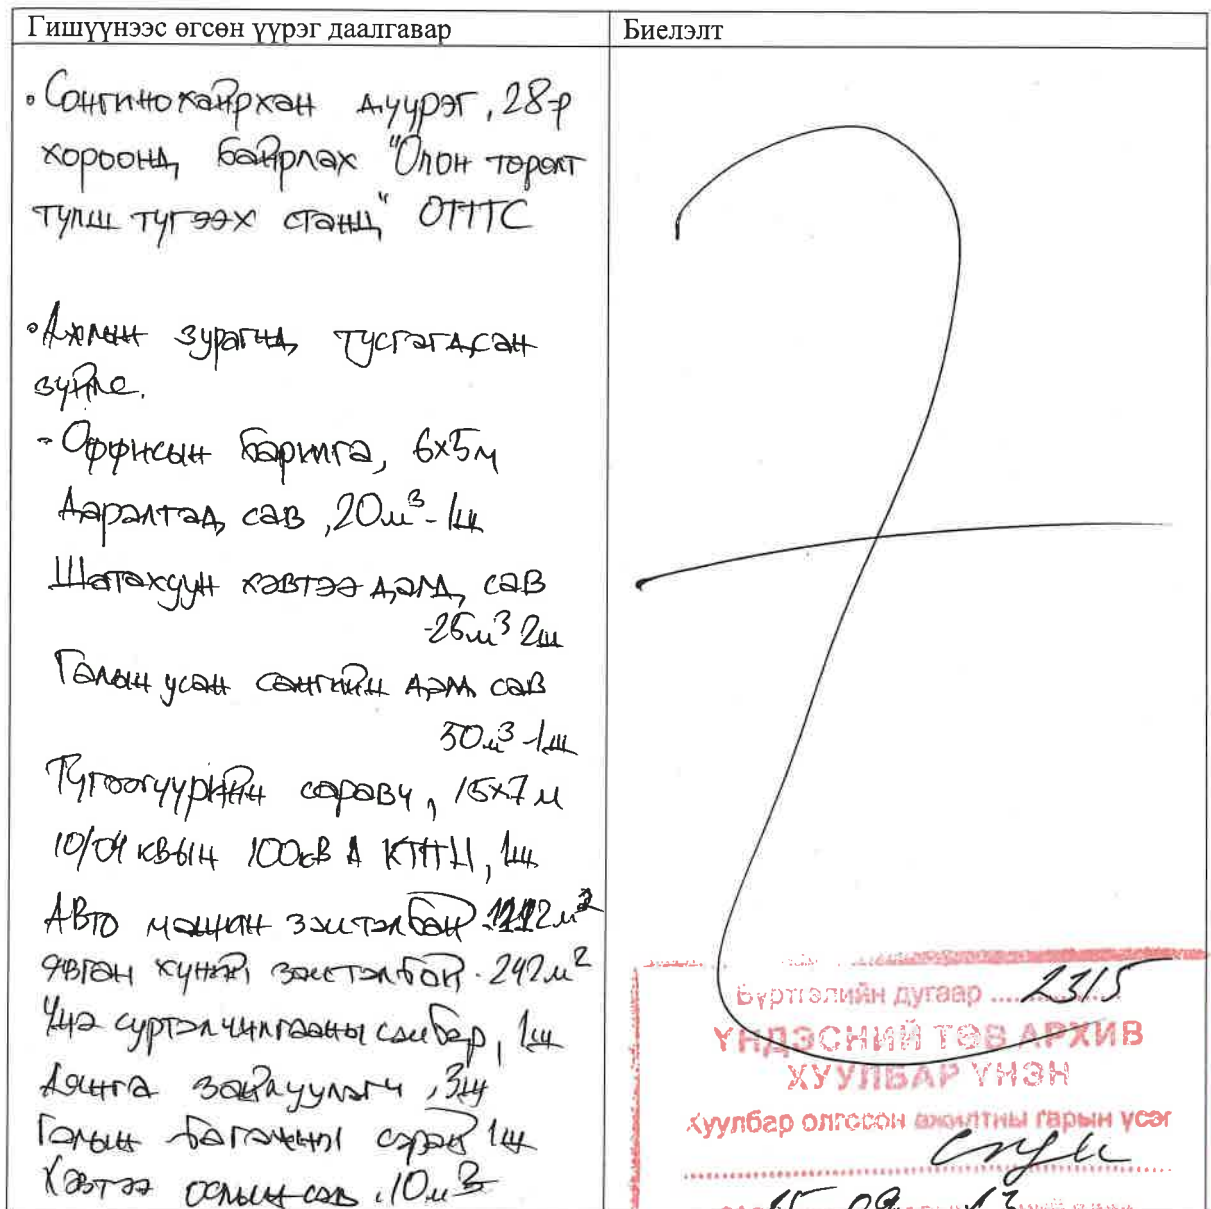 Гишүүнээс өгсөн үүрэг даалгавар
Биелэлт
• Сонгинохайрхан дүүрэг, 28-р
хороонд байрлах "Олон төрөлт
түлш түгээх станц" ОТТТС
• Ажлын зурагнд тусгагдсан
зүйлс.
- Оффисын барилга, 6x5м
Даралтад сав, 20м³ - 1ш
Шатахуун хэвтээ далд сав
-25м³ 2ш
Галын усан сангийн далд сав
50м³ - 1ш
Түгээгүүрийн саравч, 15x7м
10/04 квын 100кВА КТПН, 1ш
Авто машин зам талбай м²
явган хүний зам талбай - 242м²
Үнэ сурталчилгааны самбар, 1ш
Аянга зайлуулагч, 3ш
Галын багажны сарай 1ш
Хэвтээ ослын сав, 10м³
Бүртгэлийн дугаар 2315
ҮНДЭСНИЙ ТӨВ АРХИВ
ХУУЛБАР ҮНЭН
Хуулбар олгосон ажилтны гарын үсэг
15 09 13